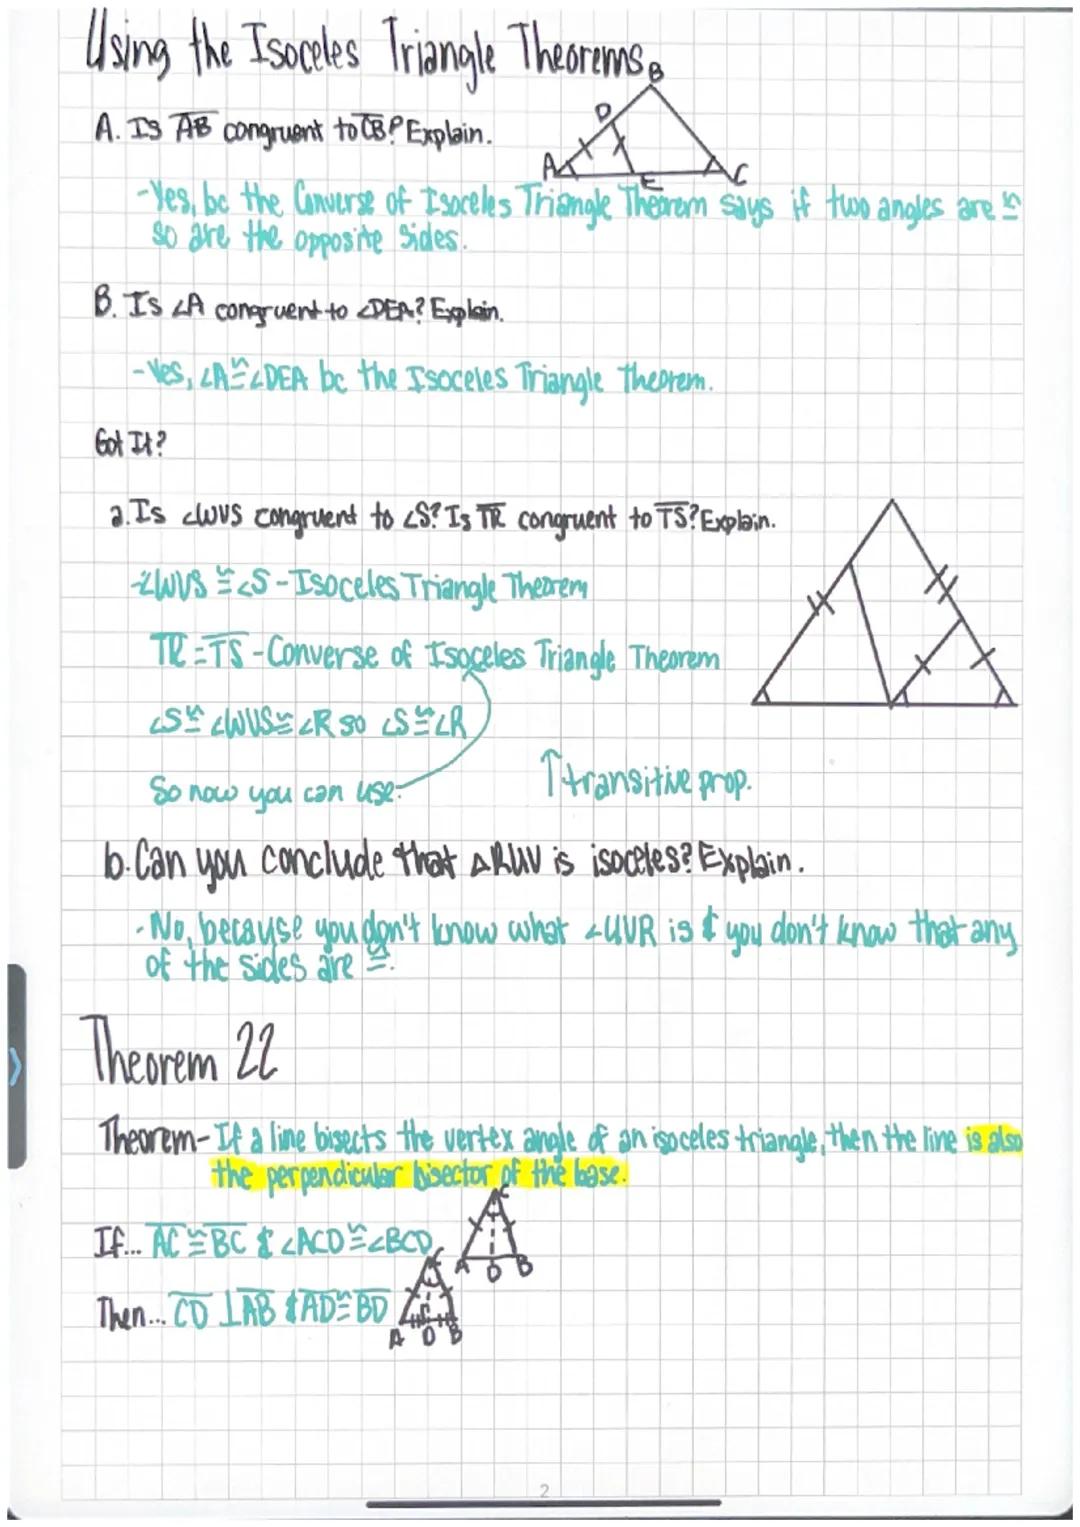 Using the Isoceles Triangle Theorems
B
A. Is AB congruent to CB? Explain.
D
A
E
C
-Yes, bc the Converse of Isoceles Triangle Theorem says if two angles are ≅
so are the opposite sides.
B. Is ∠A congruent to ∠DEA? Explain.
-Yes, ∠A≅∠DEA bc the Isoceles Triangle Theorem.
Got It?
a. Is ∠WVS congruent to ∠S? Is TR congruent to TS? Explain.
-∠WVS ≅ ∠S - Isoceles Triangle Theorem
TR = TS - Converse of Isoceles Triangle Theorem
∠S ≅ ∠WVS ≅ ∠R so ∠S ≅ ∠R
So now you can use-
↑transitive prop.
b. Can you conclude that △RUV is isoceles? Explain.
-No, because you don't know what ∠UVR is & you don't know that any
of the sides are ≅.
Theorem 22
Theorem- If a line bisects the vertex angle of an isoceles triangle, then the line is also
the perpendicular bisector of the base.
C
If... AC ≅ BC & ∠ACD ≅ ∠BCD
A D B
C
Then... CD ⊥ AB & AD ≅ BD
A D B
2